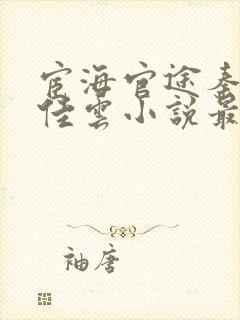 宦海官途秦
佳雲小説最
袖唐